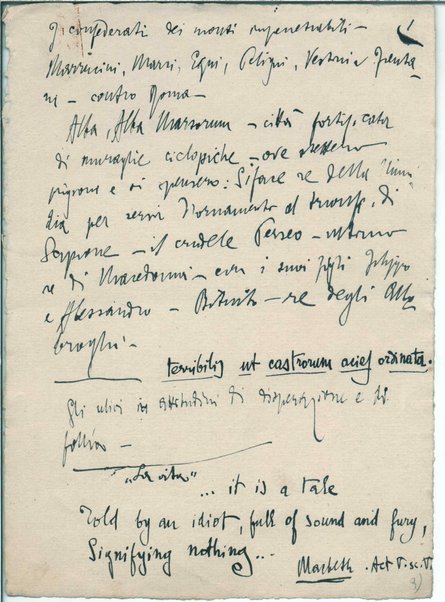 I confederati dei monti impenetrabili –
Marrucini, Marsi, Equi, Peligni, Vestini e Frenta
ni – contro Roma –
Alba, Alba Marsorum – città fortificata
di muraglie ciclopiche – ove stettero
prigioni e si spensero: Siface re della Numi
dia per servir d'ornamento al trionfo di
Scipione – il crudele Perseo – ultimo
re di Macedonia – con i suoi figli Filippo
e Alessandro – Bituito – re degli Allo
brogi.
terribilis ut castrorum acies ordinata.
Gli ulivi in attitudini di disperazione e di
follia –
"La vita"
... it is a tale
Told by an idiot, full of sound and fury,
Signifying nothing...
Macbeth. Act V. sc. V.